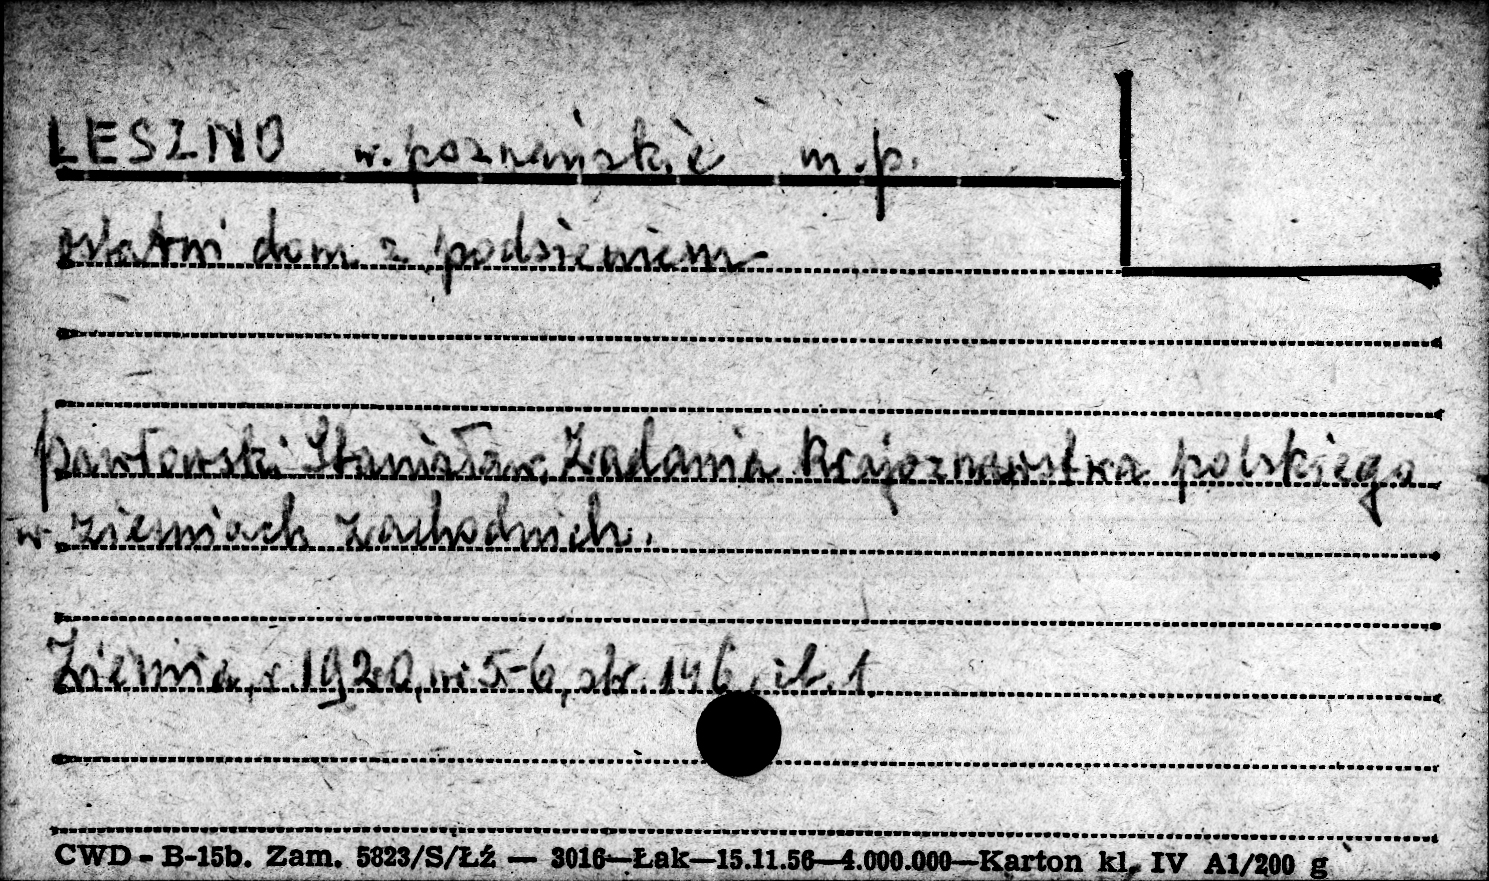 LESZNO w. poznańskie m.p.
ostatni dom z podsieniem
Pawłowski Stanisław, Zadania krajoznawstwa polskiego
w ziemiach zachodnich.
Ziemia, r. 1920, nr 5-6, str. 146, il. 1
CWD - B-15b. Zam. 5823/S/Łź — 3016—Łak—15.11.56—4.000.000—Karton kl. IV A1/200 g